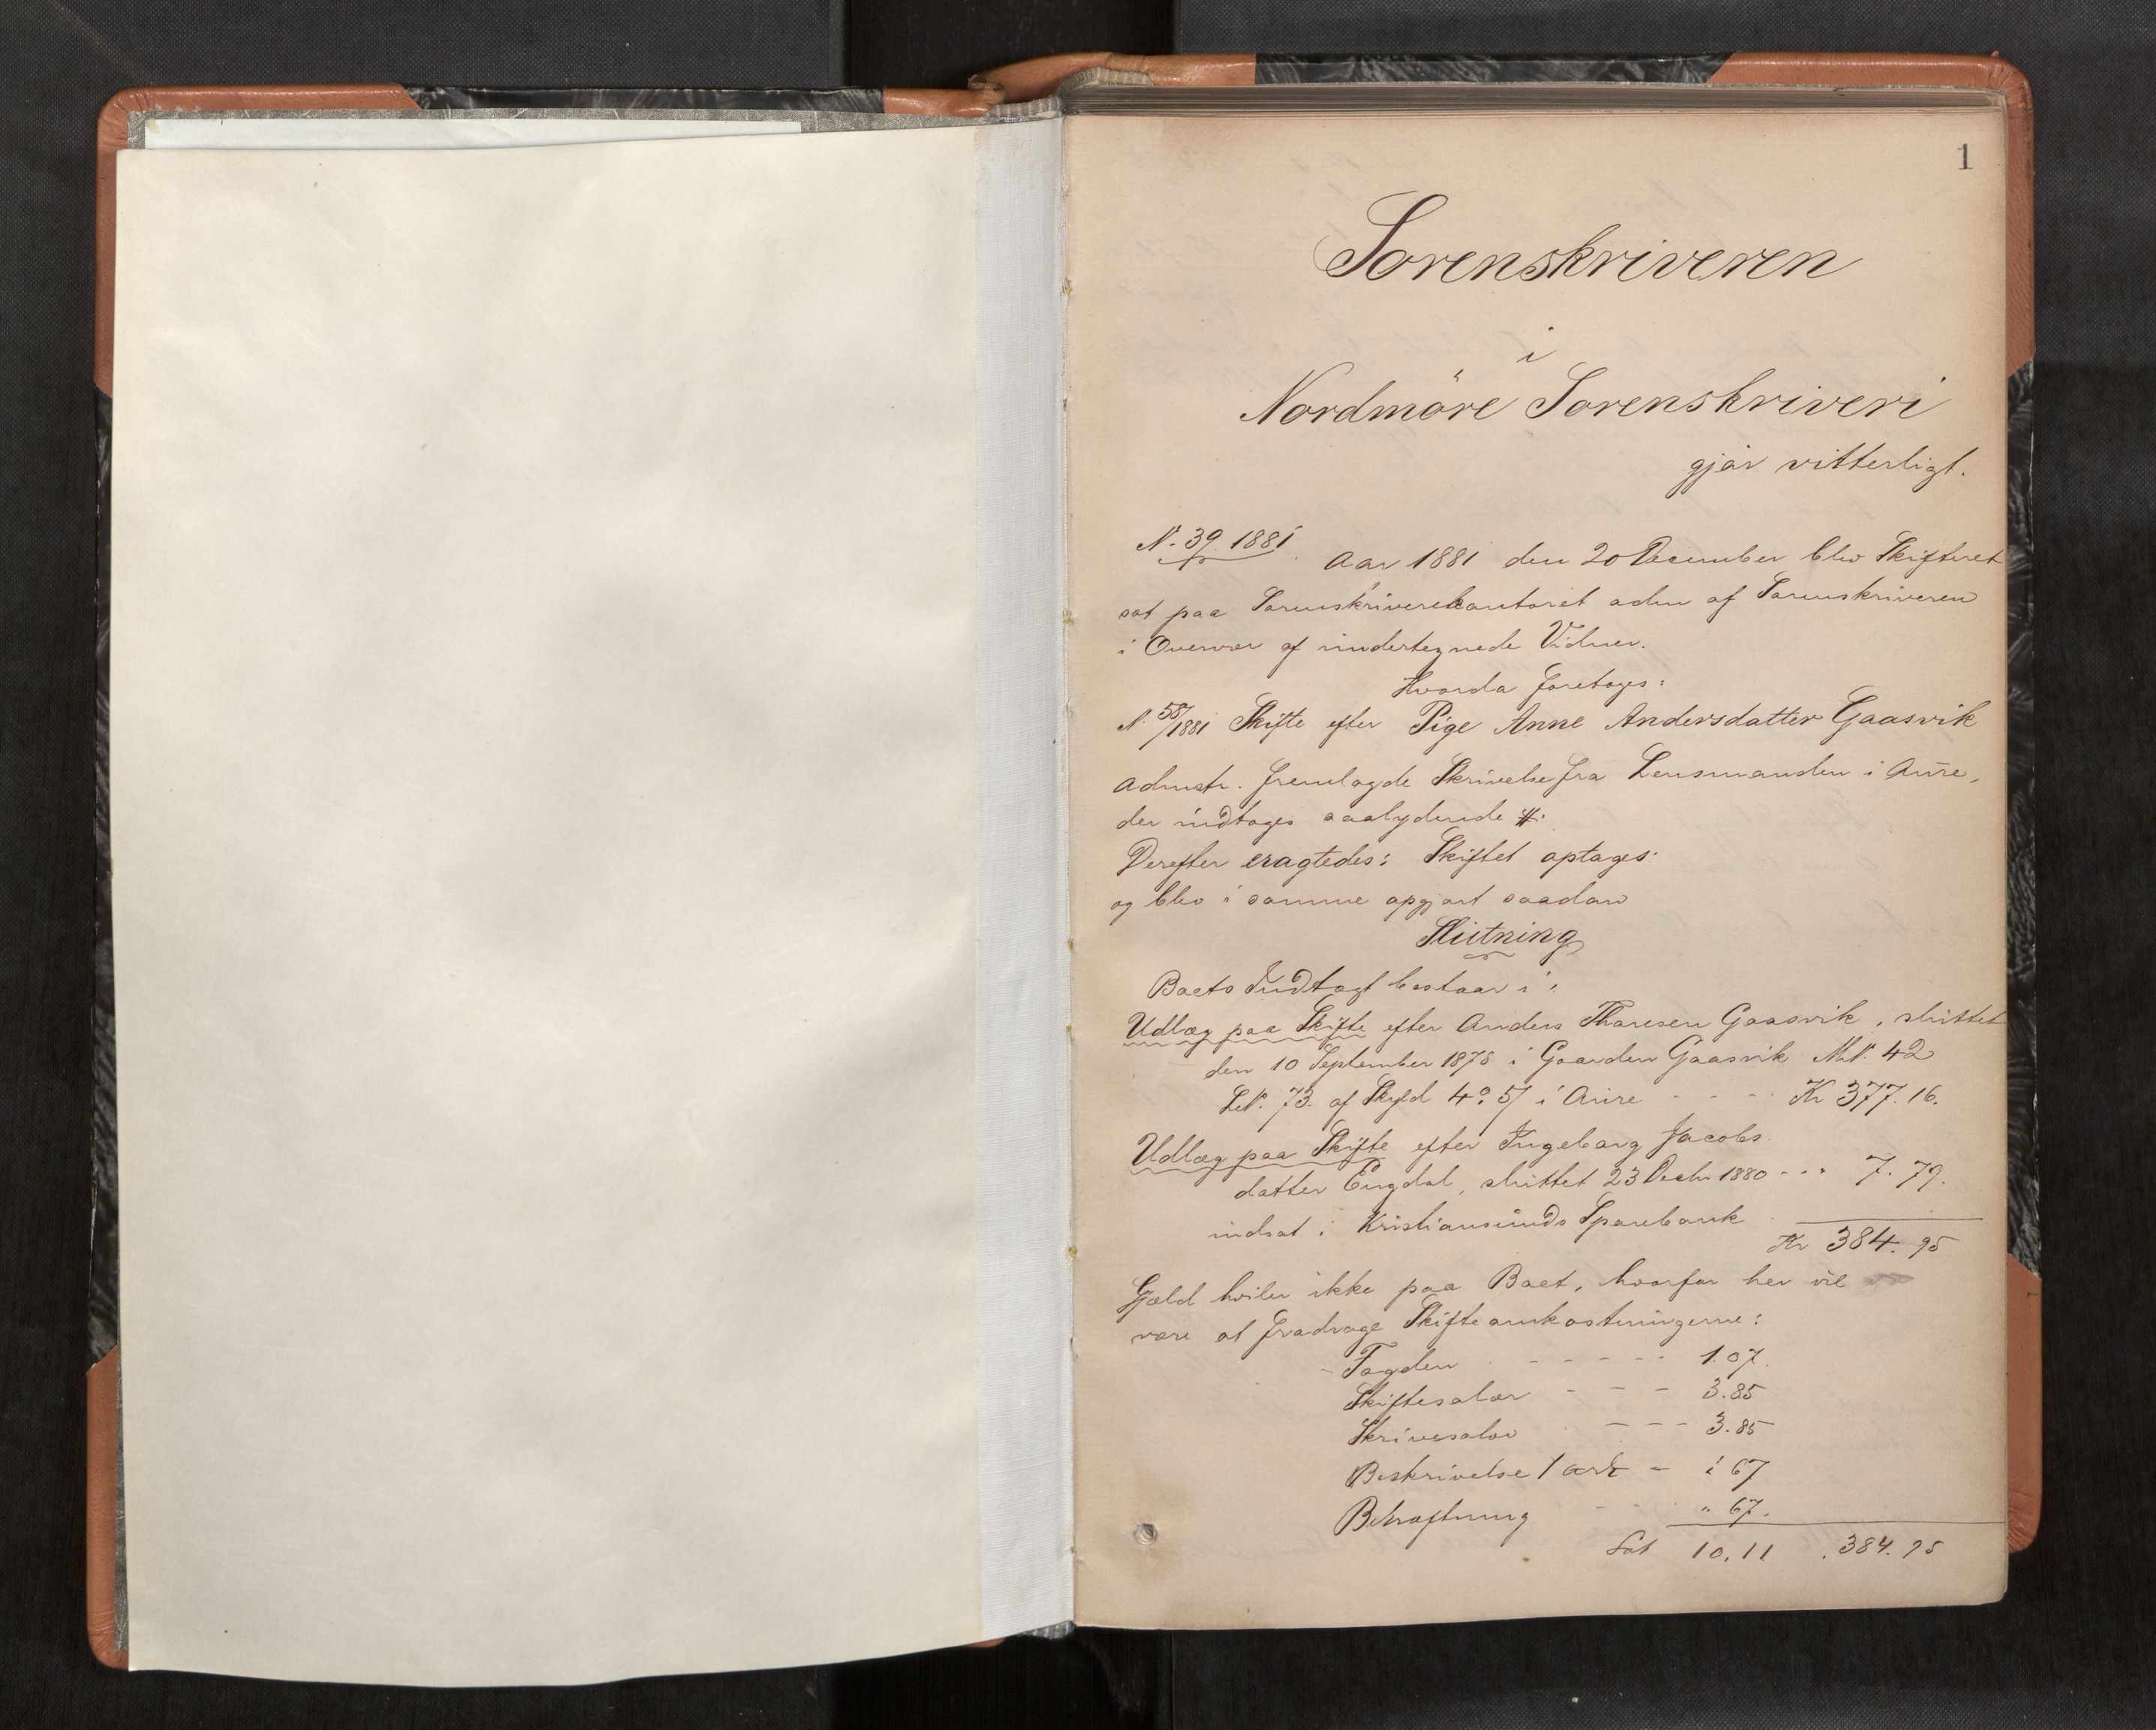 1
Sorenskriveren
i
Nordmöre Sorenskriveri
gjör vitterligt.
N. 39 1881
Aar 1881 den 20 December blev Skifteret
sat paa Sorenskriverekontoret adm af Sorenskriveren
i Overvær af undertegnede Vidner.
Hvorda foretoges:
N. 58/1881 Skifte efter Pige Anne Andersdatter Gaasvik
Admstr. fremlagde Skrivelse fra Lensmanden i Aure,
der indtages saalydende #:
Derefter eragtedes: Skiftet optages:
og blev i samme opgjort saadan
Slutning
Boets Indtægt bestaar i:
Udlæg paa Skifte efter Anders Thoresen Gaasvik, sluttet
den 10 September 1878 i Gaarden Gaasvik M.N. 42
L.N. 73. af Skyld 4 o. 5/ i Aure - - - - Kr 377.16.
Udlæg paa Skifte efter Ingeborg Jacobs
datter Engdal, sluttet 23 Decbr 1880 - - - 7.79.
indsat i Kristiansunds Sparebank
Kr 384.95
Gjæld hviler ikke paa Boet, hvorfor her vil
være at fradrage Skifteomkostningerne:
Fogden - - - - - 1.07.
Skiftesalær - - - 3.85
Skrivesalær - - - 3.85
Beskrivelse 1 ark - " 67
Bekræftning - - " 67.
Lat 10.11 . 384.95